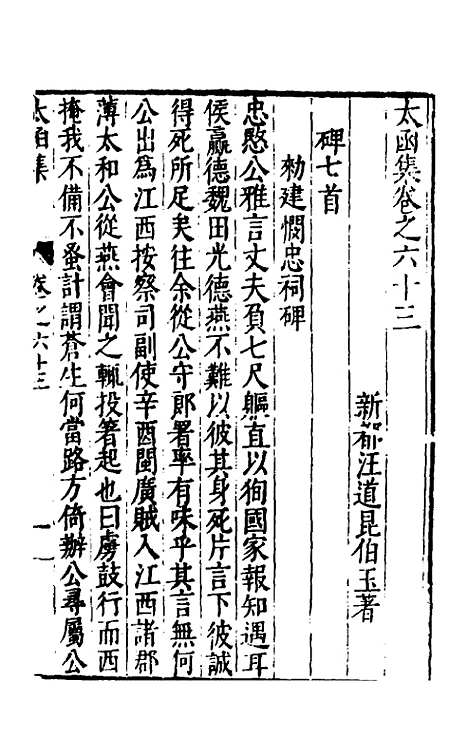 太函集卷之六十三
新都汪道昆伯玉著
碑七首
勑建憫忠祠碑
忠愍公雅言丈夫負七尺軀直以徇國家報知遇耳
侯嬴德魏田光德燕不難以彼其身死片言下彼誠
得死所足矣往余從公守郎署率有味乎其言無何
公出為江西按察司副使辛酉閩廣賊入江西諸郡
薄太和公從燕會聞之輒投箸起也曰虜鼓行而西
掩我不備不蚤計謂蒼生何當路方倚辦公尋屬公
太函集
卷之六十三
一